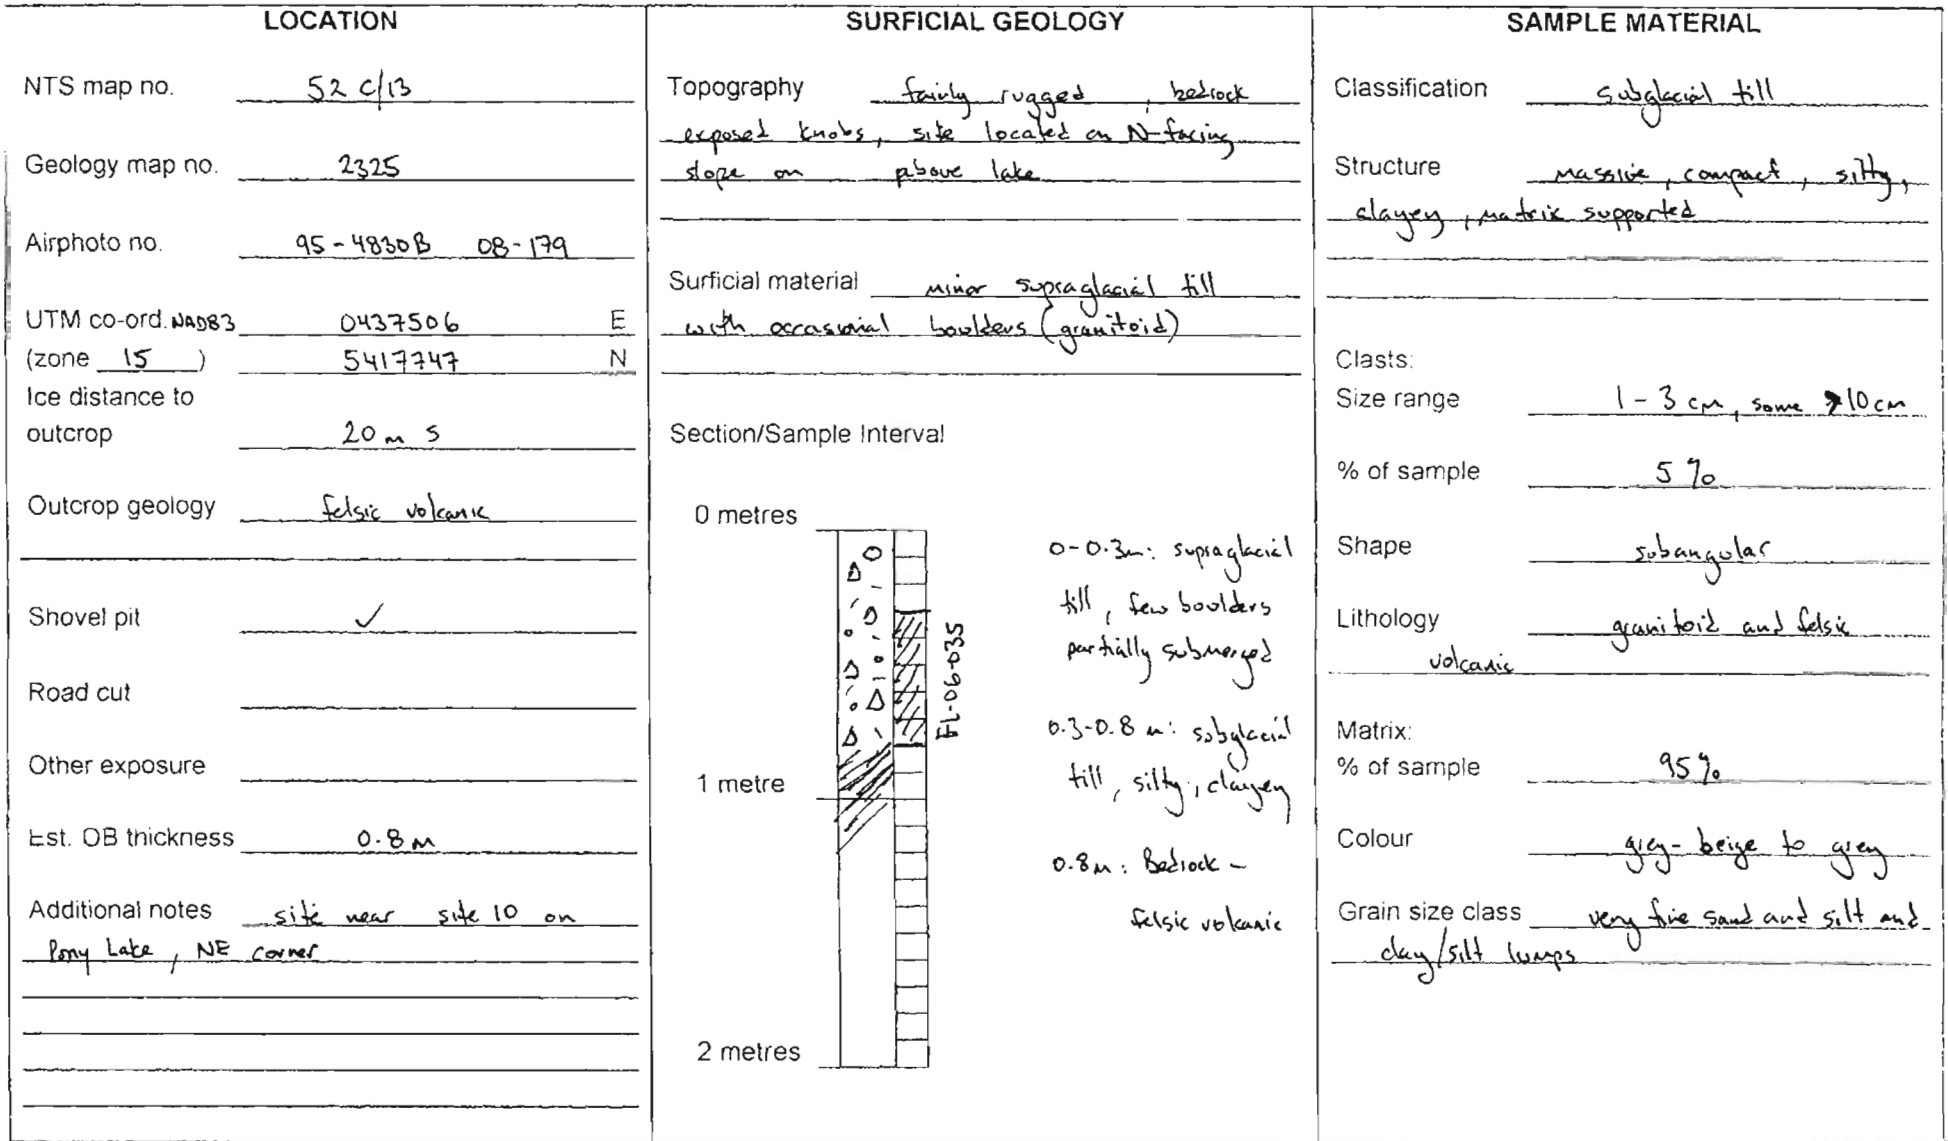 LOCATION
NTS map no. 52 C/13
Geology map no. 2325
Airphoto no. 95-4830B 08-179
UTM co-ord. NAD83 0437506 E
(zone 15 ) 5417747 N
Ice distance to
outcrop 20 m S
Outcrop geology felsic volcanic
Shovel pit ✓
Road cut
Other exposure
Est. OB thickness 0.8 m
Additional notes site near site 10 on
Pony Lake, NE corner
SURFICIAL GEOLOGY
Topography fairly rugged, bedrock
exposed knobs, site located on N-facing
slope on above lake
Surficial material minor supraglacial till
with occasional boulders (granitoid)
Section/Sample Interval
0 metres
1 metre
2 metres
FL-06-035
0-0.3m: supraglacial
till, few boulders
partially submerged
0.3-0.8 m: subglacial
till, silty, clayey
0.8m: Bedrock -
felsic volcanic
SAMPLE MATERIAL
Classification subglacial till
Structure massive, compact, silty,
clayey, matrix supported
Clasts:
Size range 1-3 cm, some >10 cm
% of sample 5%
Shape subangular
Lithology granitoid and felsic
volcanic
Matrix:
% of sample 95%
Colour grey-beige to grey
Grain size class very fine sand and silt and
clay/silt lumps